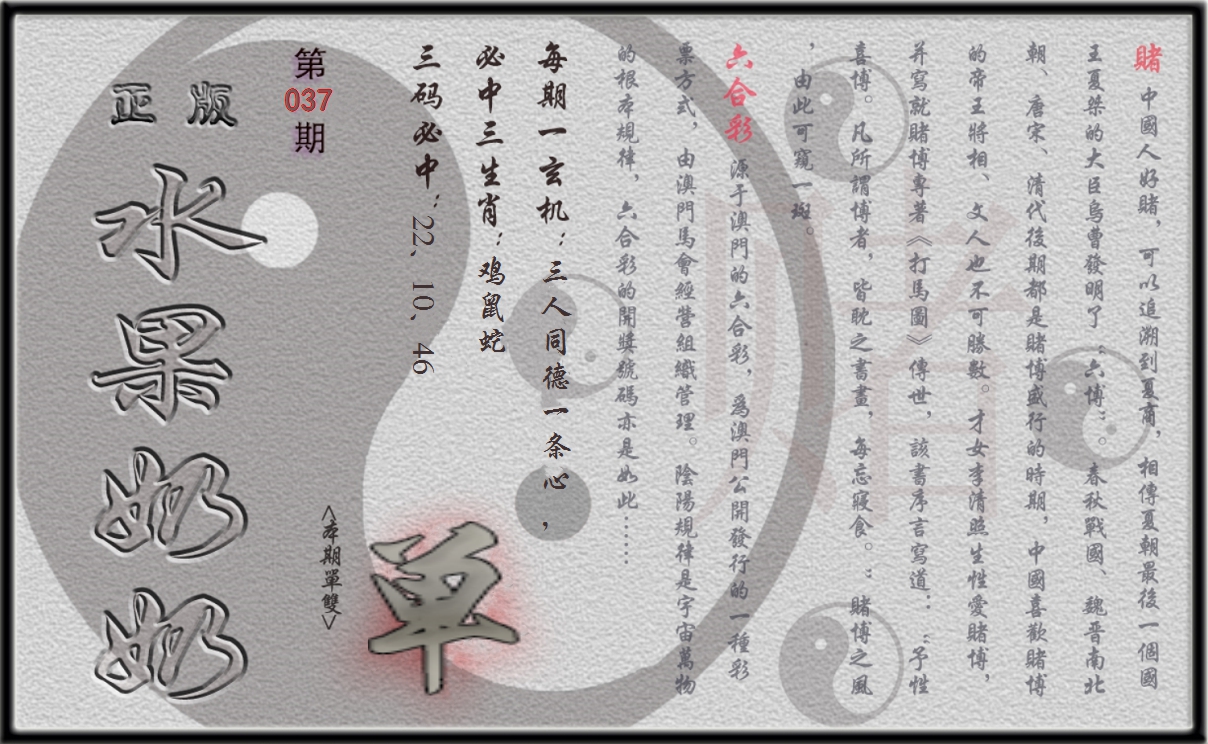 賭 中國人好賭，可以追溯到夏商，相傳夏朝最後一個國
王夏桀的大臣烏曹發明了“六博”。春秋戰國、魏晉南北
朝、唐宋、清代後期都是賭博盛行的時期，中國喜歡賭博
的帝王將相、文人也不可勝數。才女李清照生性愛賭博，
并寫就賭博專著《打馬圖》傳世，該書序言寫道：“予性
喜博。凡所謂博者，皆耽之晝，每忘寢食。”賭博之風
，由此可窺一斑。
六合彩 源于澳門的六合彩，爲澳門公開發行的一種彩
票方式，由澳門馬會經營組織管理。陰陽規律是宇宙萬物
的根本規律，六合彩的開獎號碼亦是如此……
每期一玄机：三人同德一条心，
必中三生肖：鸡鼠蛇
三码必中：22、10、46
单
<本期單雙>
第
037
期
正版
水果奶奶
赌